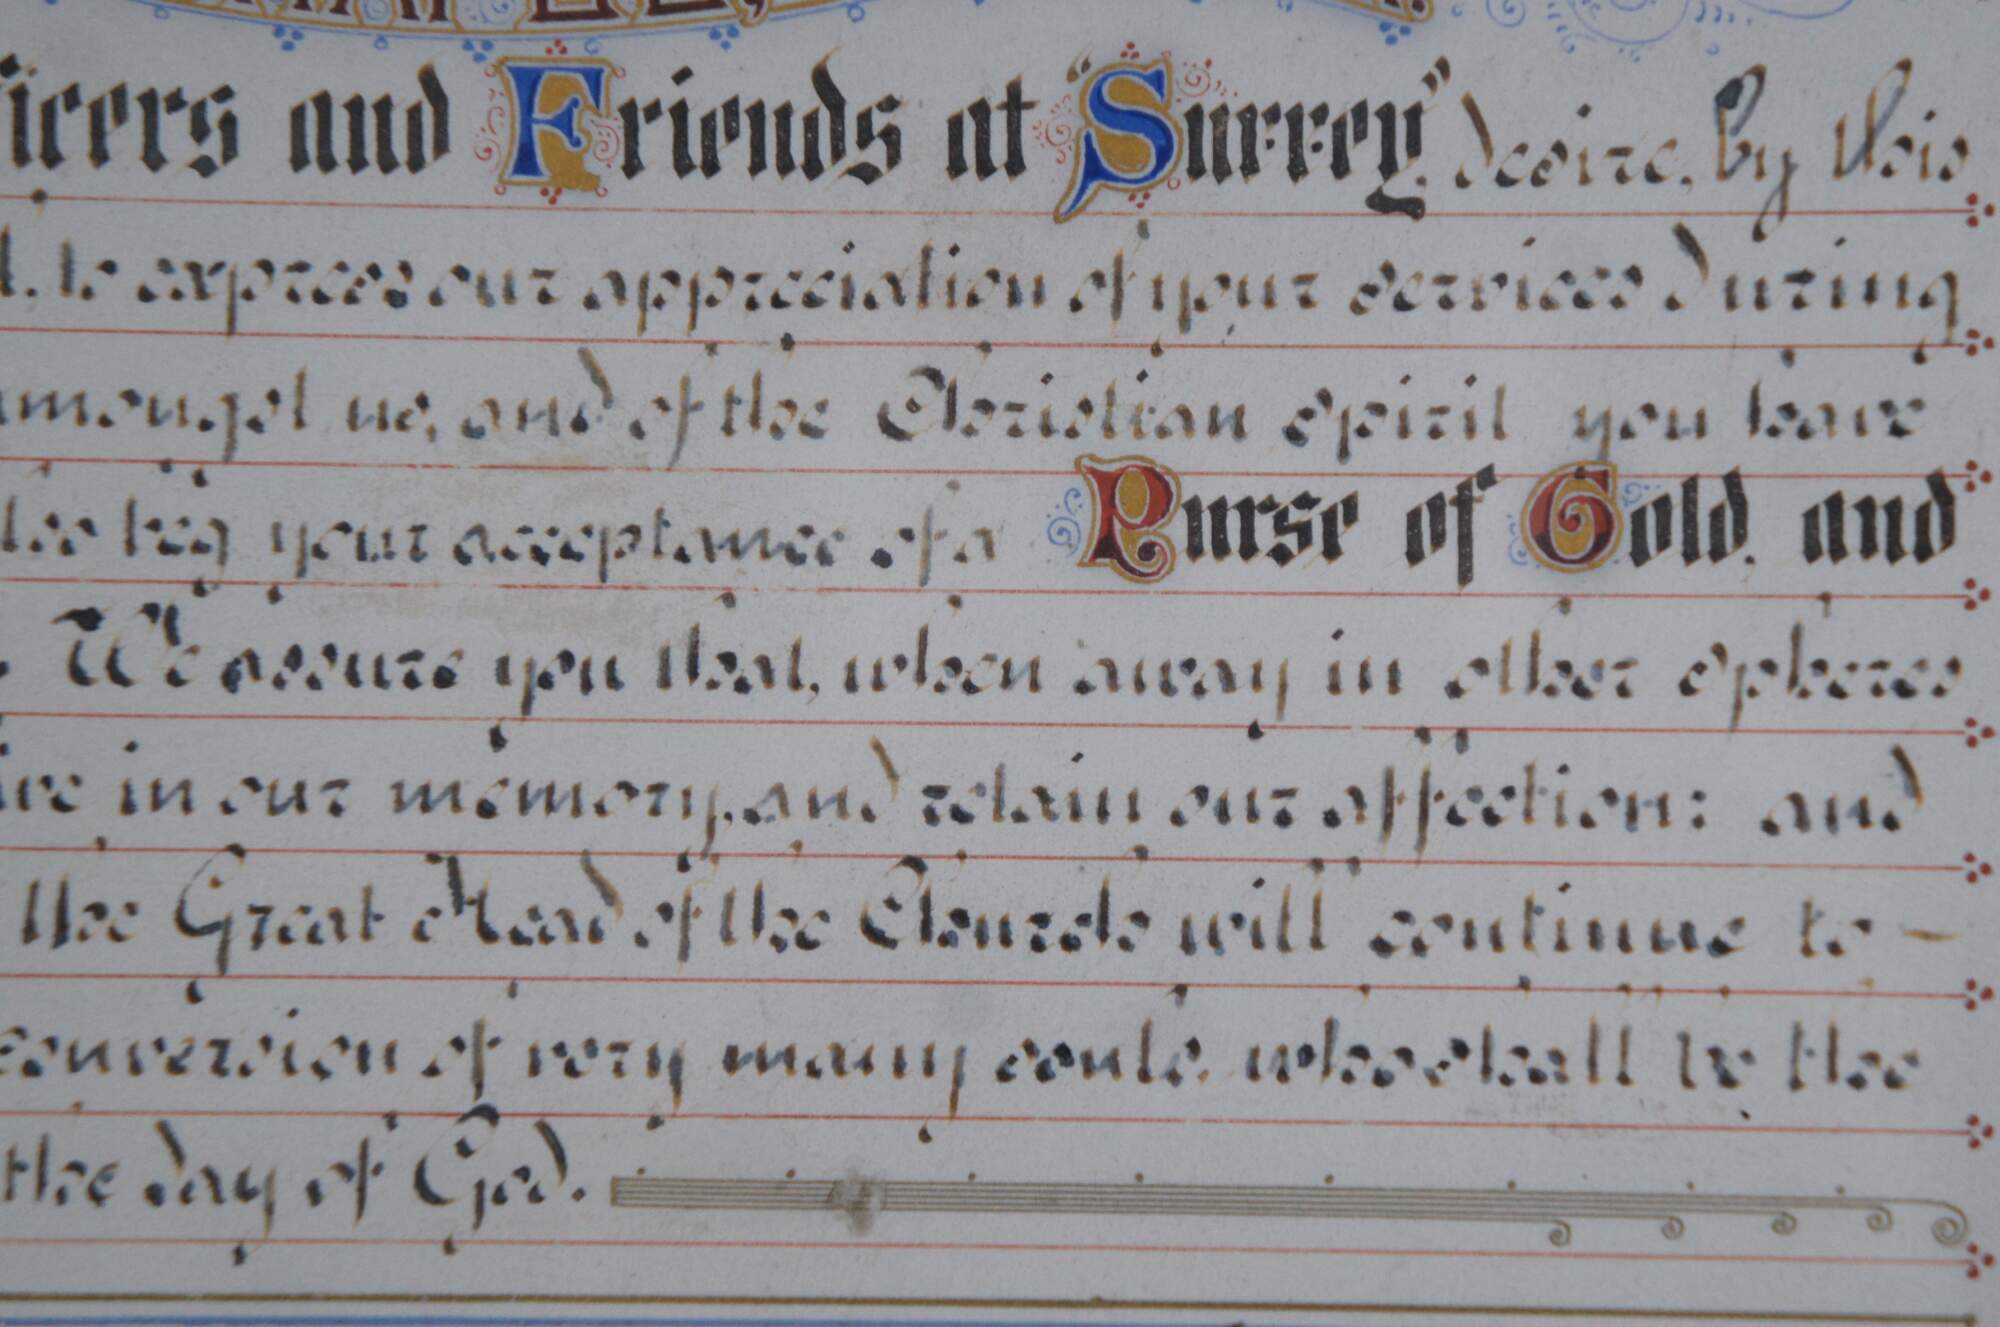 icers and Friends at "Surrey," desire, by this
to express our appreciation of your services during
amongst us, and of the Christian spirit you have
also beg your acceptance of a Purse of Gold, and
We assure you that, when away in other spheres
live in our memory, and retain our affection: and
the Great Head of the Church will continue to -
conversion of very many souls, who shall be the
the day of God.